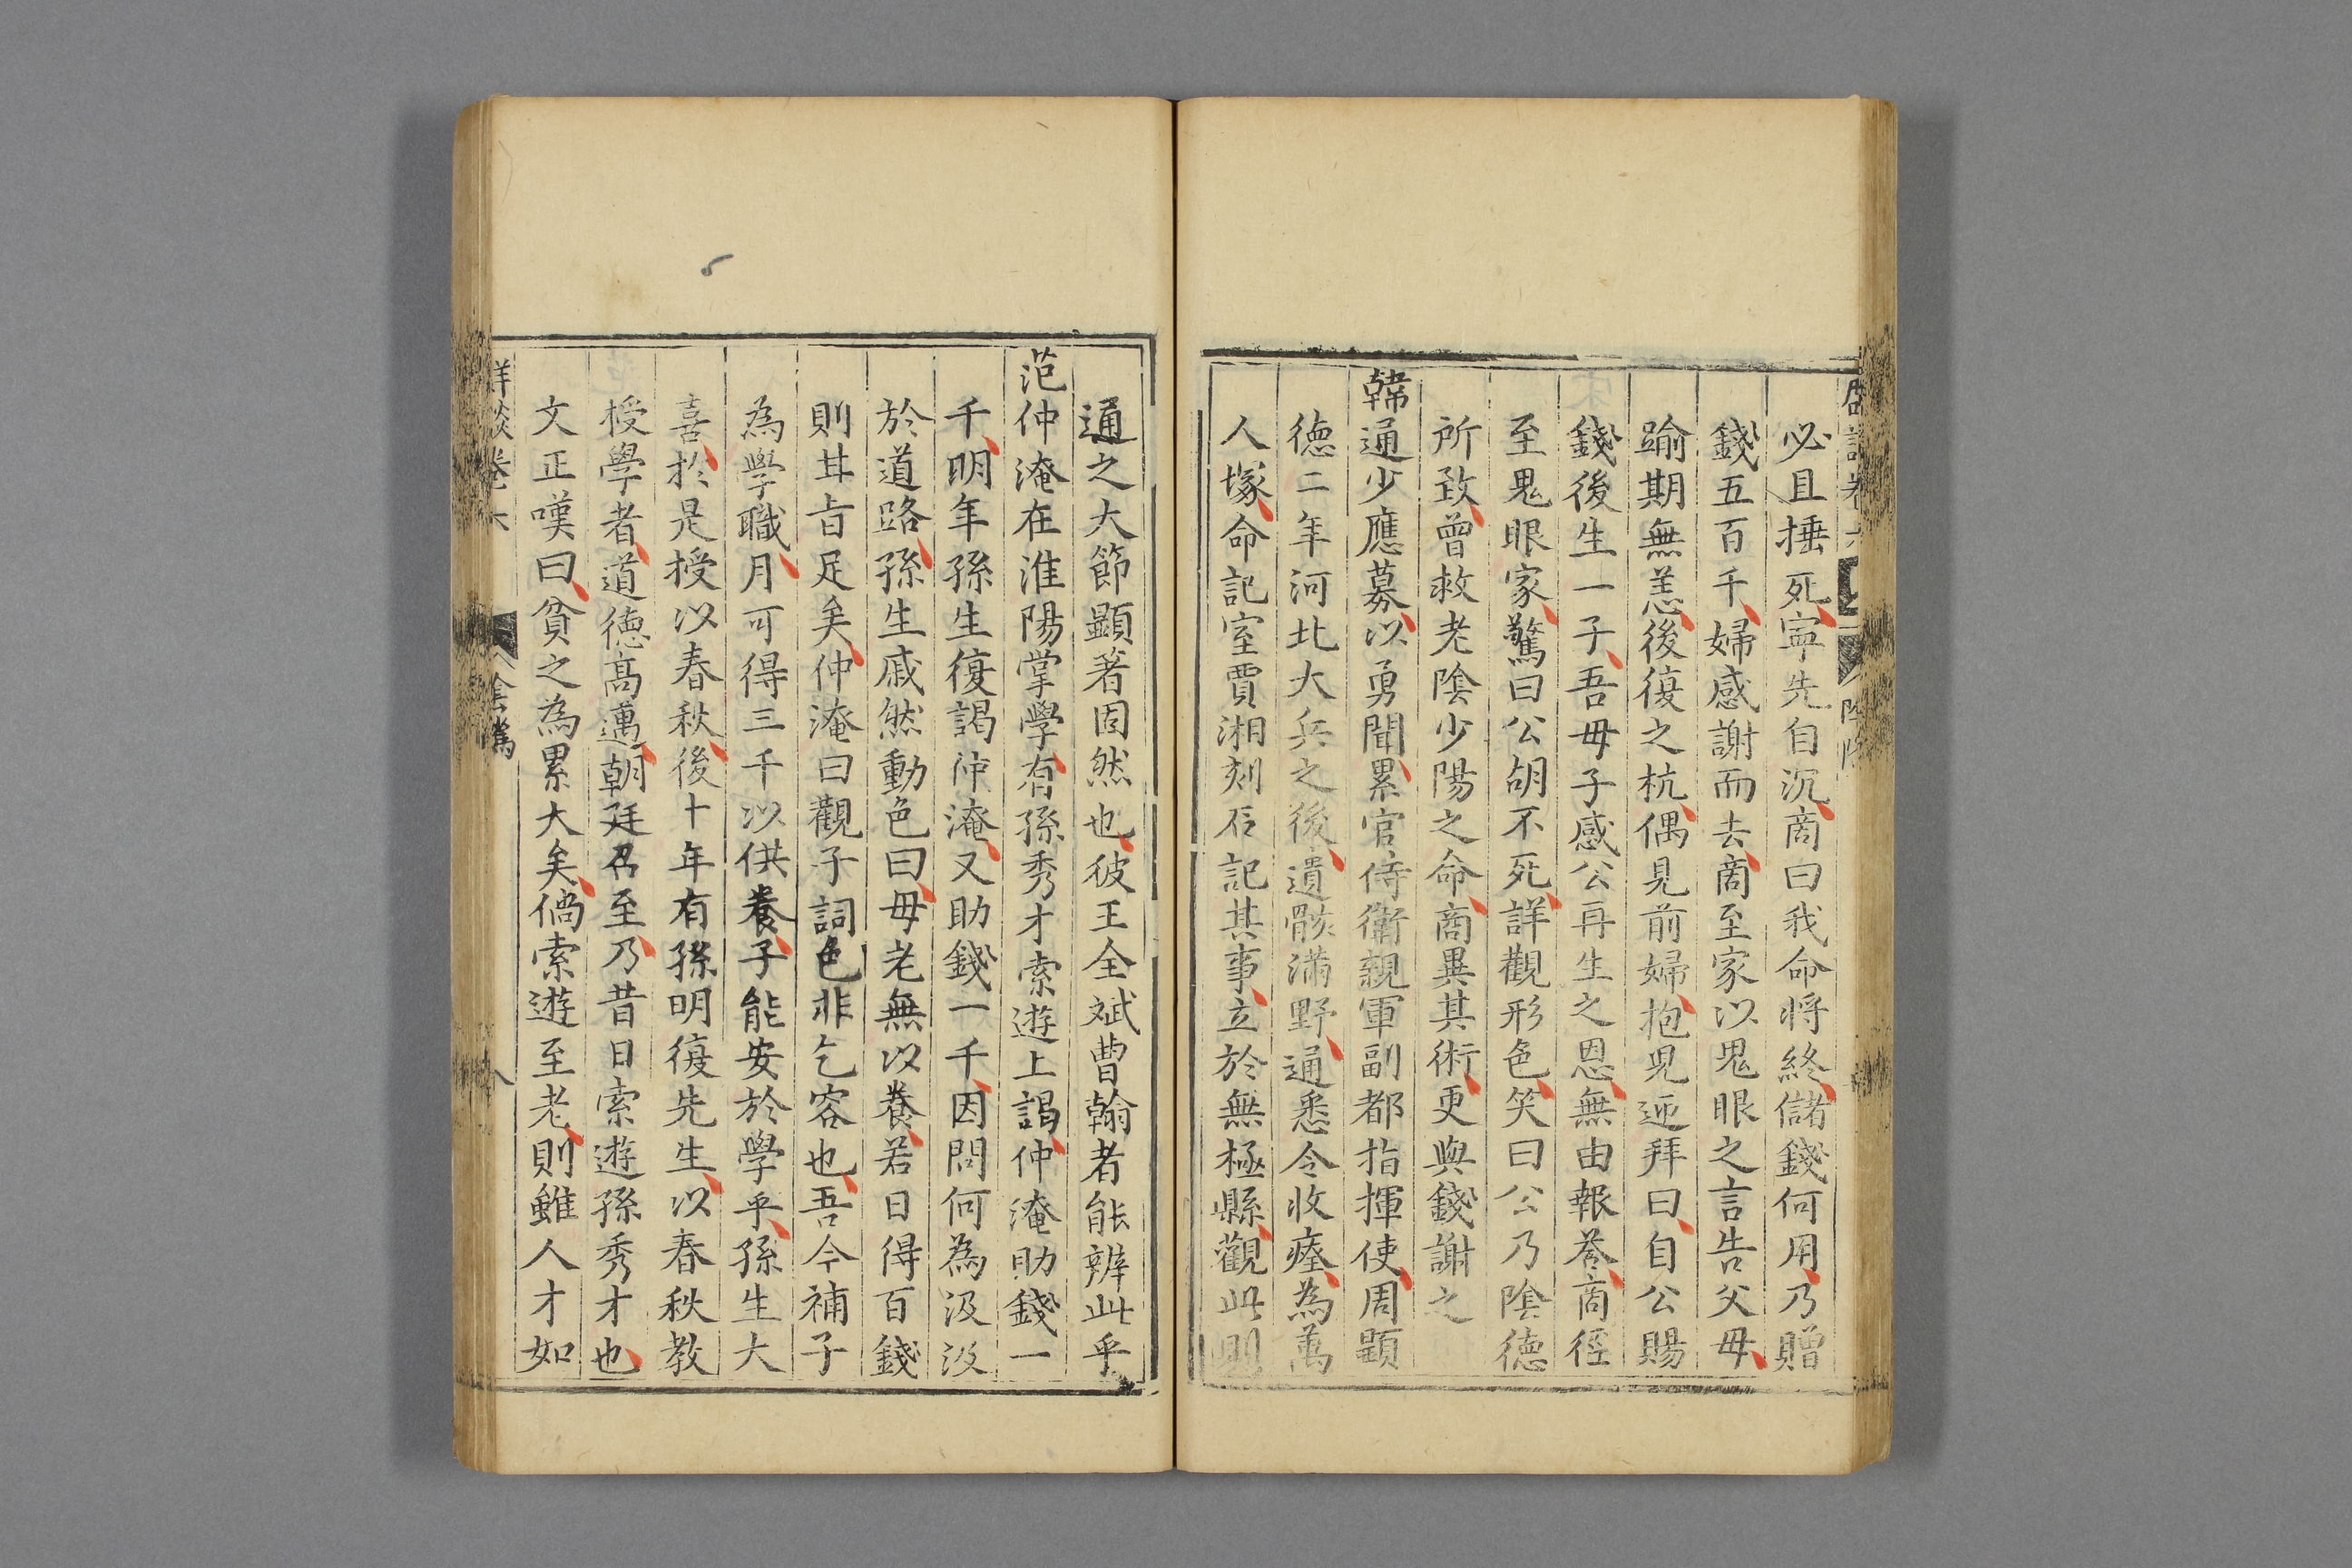 必且捶死寧先自沉商曰我命將終儲錢何用乃贈
錢五百千婦感謝而去商至家以鬼眼之言告父母
踰期無恙後復之杭偶見前婦抱兒迎拜曰自公賜
錢後生一子吾母子感公再生之恩無由報荅商徑
至鬼眼家驚曰公胡不死詳觀形色笑曰公乃陰德
所致曾救老陰少陽之命商異其術更與錢謝之
韓通少應募以勇聞累官侍衛親軍副都指揮使周顯
德二年河北大兵之後遺骸滿野通悉令收瘞為萬
人塚命記室賈湘刻石記其事立於無極縣觀此則
通之大節顯著固然也彼王全斌曹翰者能辨此乎
范仲淹在淮陽掌學有孫秀才索遊上謁仲淹助錢一
千明年孫生復謁仲淹又助錢一千因問何為汲汲
於道路孫生戚然動色曰母老無以養若日得百錢
則甘旨足矣仲淹曰觀子詞色非乞客也吾今補子
為學職月可得三千以供養子能安於學乎孫生大
喜於是授以春秋後十年有孫明復先生以春秋教
授學者道德高邁朝廷召至乃昔日索遊孫秀才也
文正嘆曰貧之為累大矣倘索遊至老則雖人才如
卷六 陰騭 八